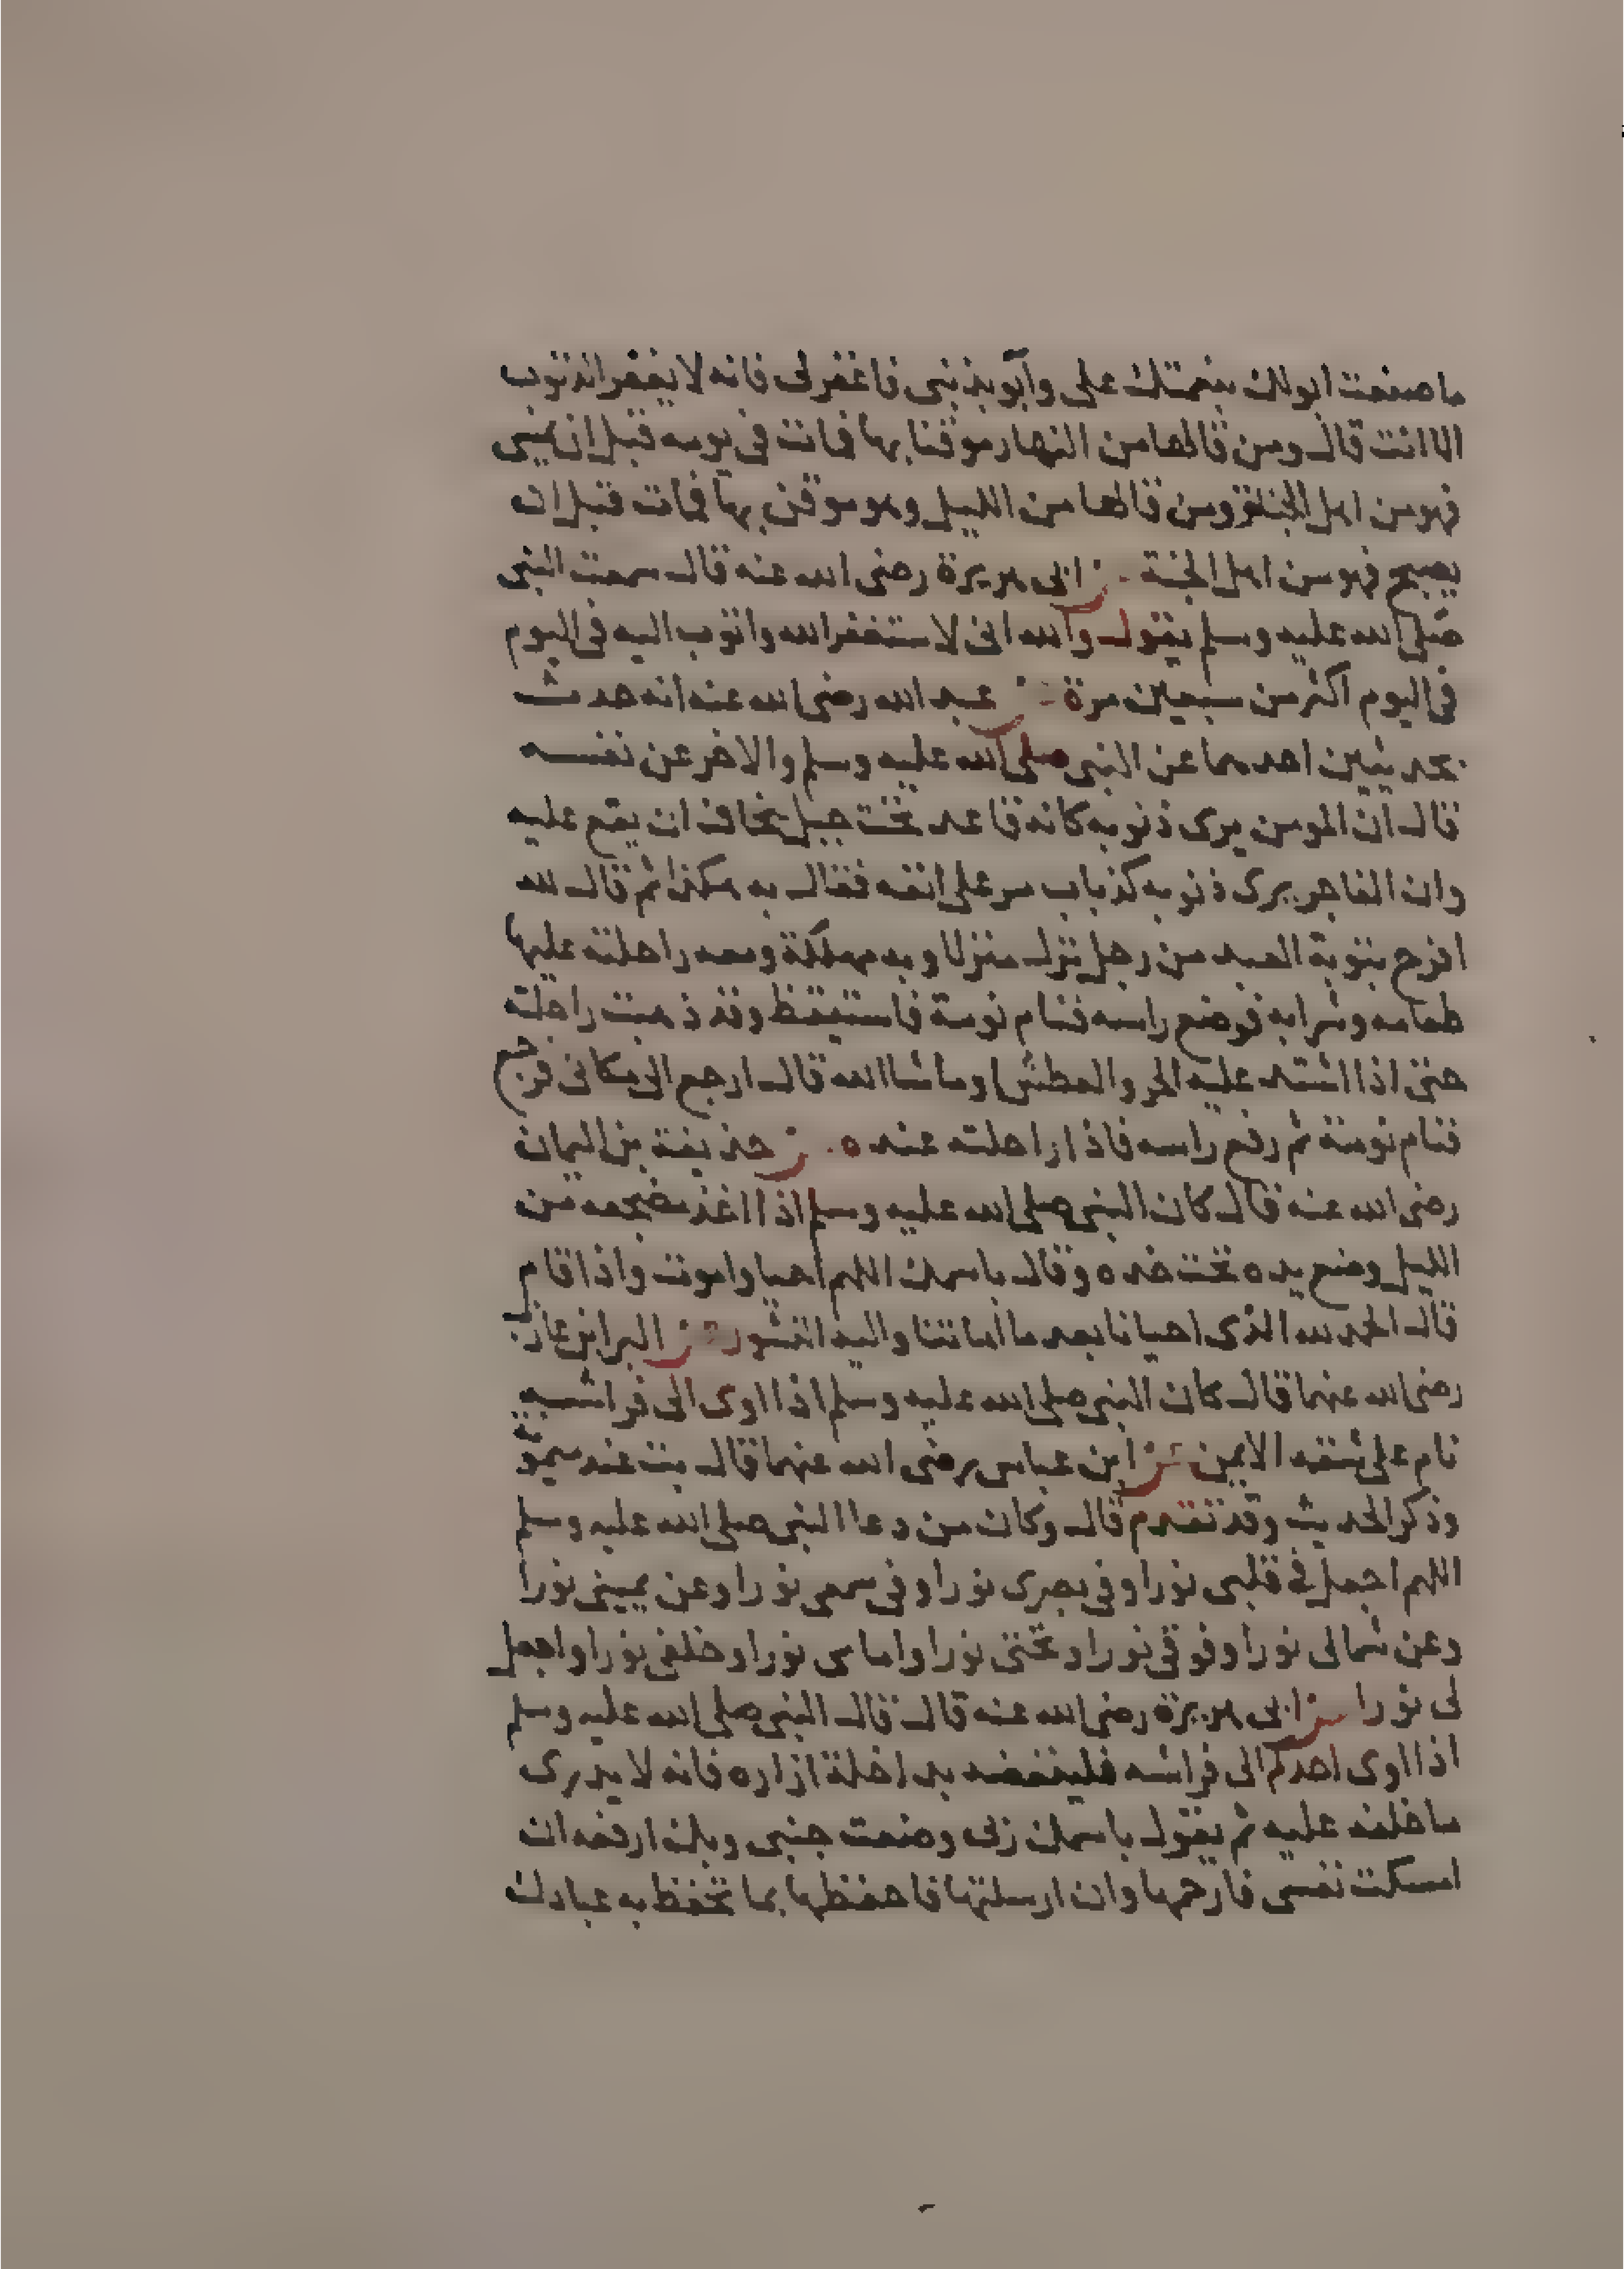 ما صنعت ابولك بنعمتك على وآبو بذنبى فاغفر لى فانه لا يغفر الذنوب
الا انت قال ومن قالها من النهار موقنا بها فمات فى يومه قبل ان يمسى
فهو من اهل الجنة ومن قالها من الليل وهو موقن بها فمات قبل ان
يصبح فهو من اهل الجنة عن ابى هريرة رضى الله عنه قال سمعت النبى
صلى الله عليه وسلم يقول والله انى لاستغفر الله واتوب اليه فى اليوم
فى اليوم اكثر من سبعين مرة عن عبد الله رضى الله عنه انه حدث
بحديثين احدهما عن النبى صلى الله عليه وسلم والاخر عن نفسه
قال ان المومن يرى ذنوبه كانه قاعد تحت جبل يخاف ان يقع عليه
وان الفاجر يرى ذنوبه كذباب مر على انفه فقال به هكذا ثم قال لله
افرح بتوبة العبد من رجل نزل منزلا وبه مهلكة ومعه راحلته عليها
طعامه وشرابه فوضع راسه فنام نومة فاستيقظ وقد ذهبت راحلته
حتى اذا اشتد عليه الحر والعطش او ما شا الله قال ارجع الى مكانى فرجع
فنام نومة ثم رفع راسه فاذا راحلته عنده ه عن حذيفة بن اليمان
رضى الله عنه قال كان النبى صلى الله عليه وسلم اذا اخذ مضجعه من
الليل وضع يده تحت خده وقال باسمك اللهم احيا واموت واذا قام
قال الحمد لله الذى احيانا بعد ما اماتنا واليه النشور عن البرا بن عازب
رضى الله عنهما قال كان النبى صلى الله عليه وسلم اذا اوى الى فراشه
نام على شقه الايمن عن ابن عباس رضى الله عنهما قال بت عند ميمونة
وذكر الحديث وقد تقدم قال وكان من دعا النبى صلى الله عليه وسلم
اللهم اجعل فى قلبى نورا وفى بصرى نورا وفى سمعى نورا وعن يمينى نورا
وعن شمالى نورا وفوقى نورا وتحتى نورا وامامى نورا وخلفى نورا واجعل
لى نورا عن ابى هريرة رضى الله عنه قال قال النبى صلى الله عليه وسلم
اذا اوى احدكم الى فراشه فلينفضه بداخلة ازاره فانه لا يدرى
ما خلفه عليه ثم يقول باسمك ربى وضعت جنبى وبك ارفعه ان
امسكت نفسى فارحمها وان ارسلتها فاحفظها بما تحفظ به عبادك